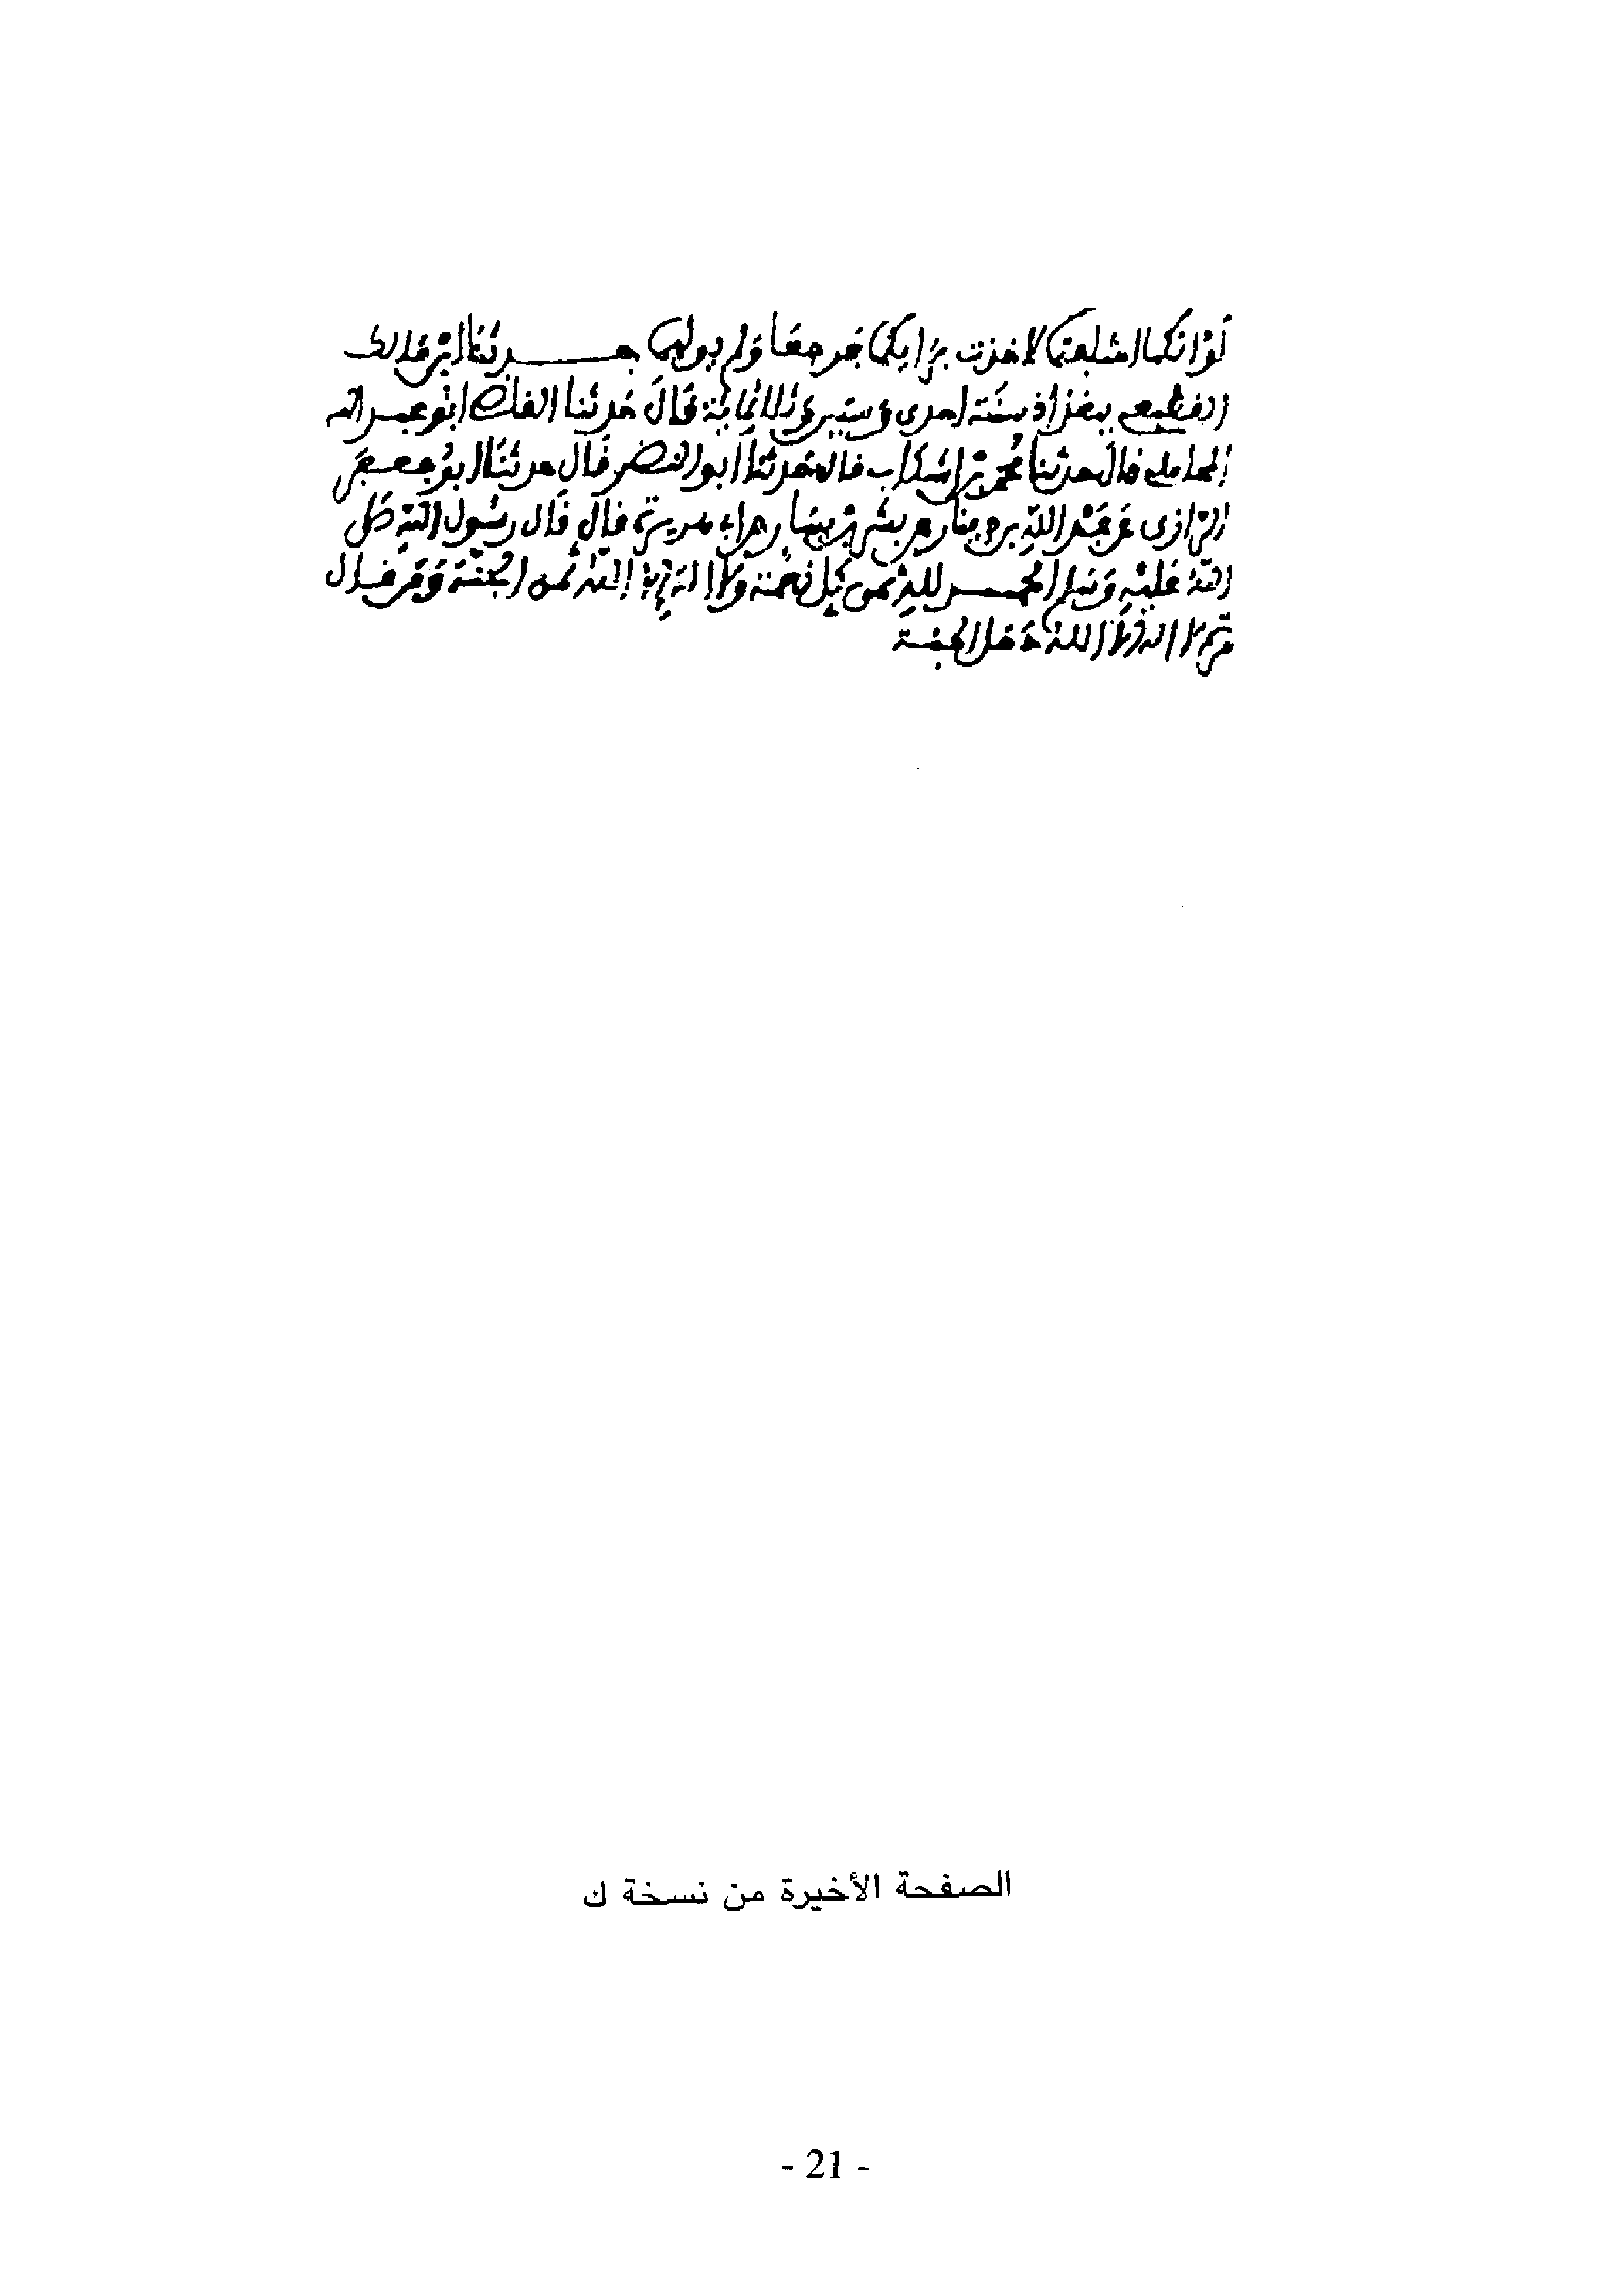 لَوْ انكما اسْتَطعتما لاخذت برايكما فَرجعَا وَلم يولهما حدثنَا ابْن مَالك
القطيعي ببغداذ سنَة احدى وَستين وَثلاثمائة قَالَ حَدثنا القاضي ابُو عبد الله
المحاملي قال حدثنا مُحمد بْن اشكاب قال حَدثنا ابو النضر قَال حدثنَا ابو جعفر
الرّازى عَن عَبْد اللهِ بن دينار عن بشير بْن يسَار عن ابي هريرة قال قال رسُول اللهِ صَلى
اللهُ عَليْهِ وَسَلم الحمد للهِ ثمن كل نعْمَة وَلا اله الا الله ثمن الجنّة وَمَن قال
لا اله الا اللهُ دَخل الجنة
الصفحة الأخيرة من نسخة ك
- 21 -